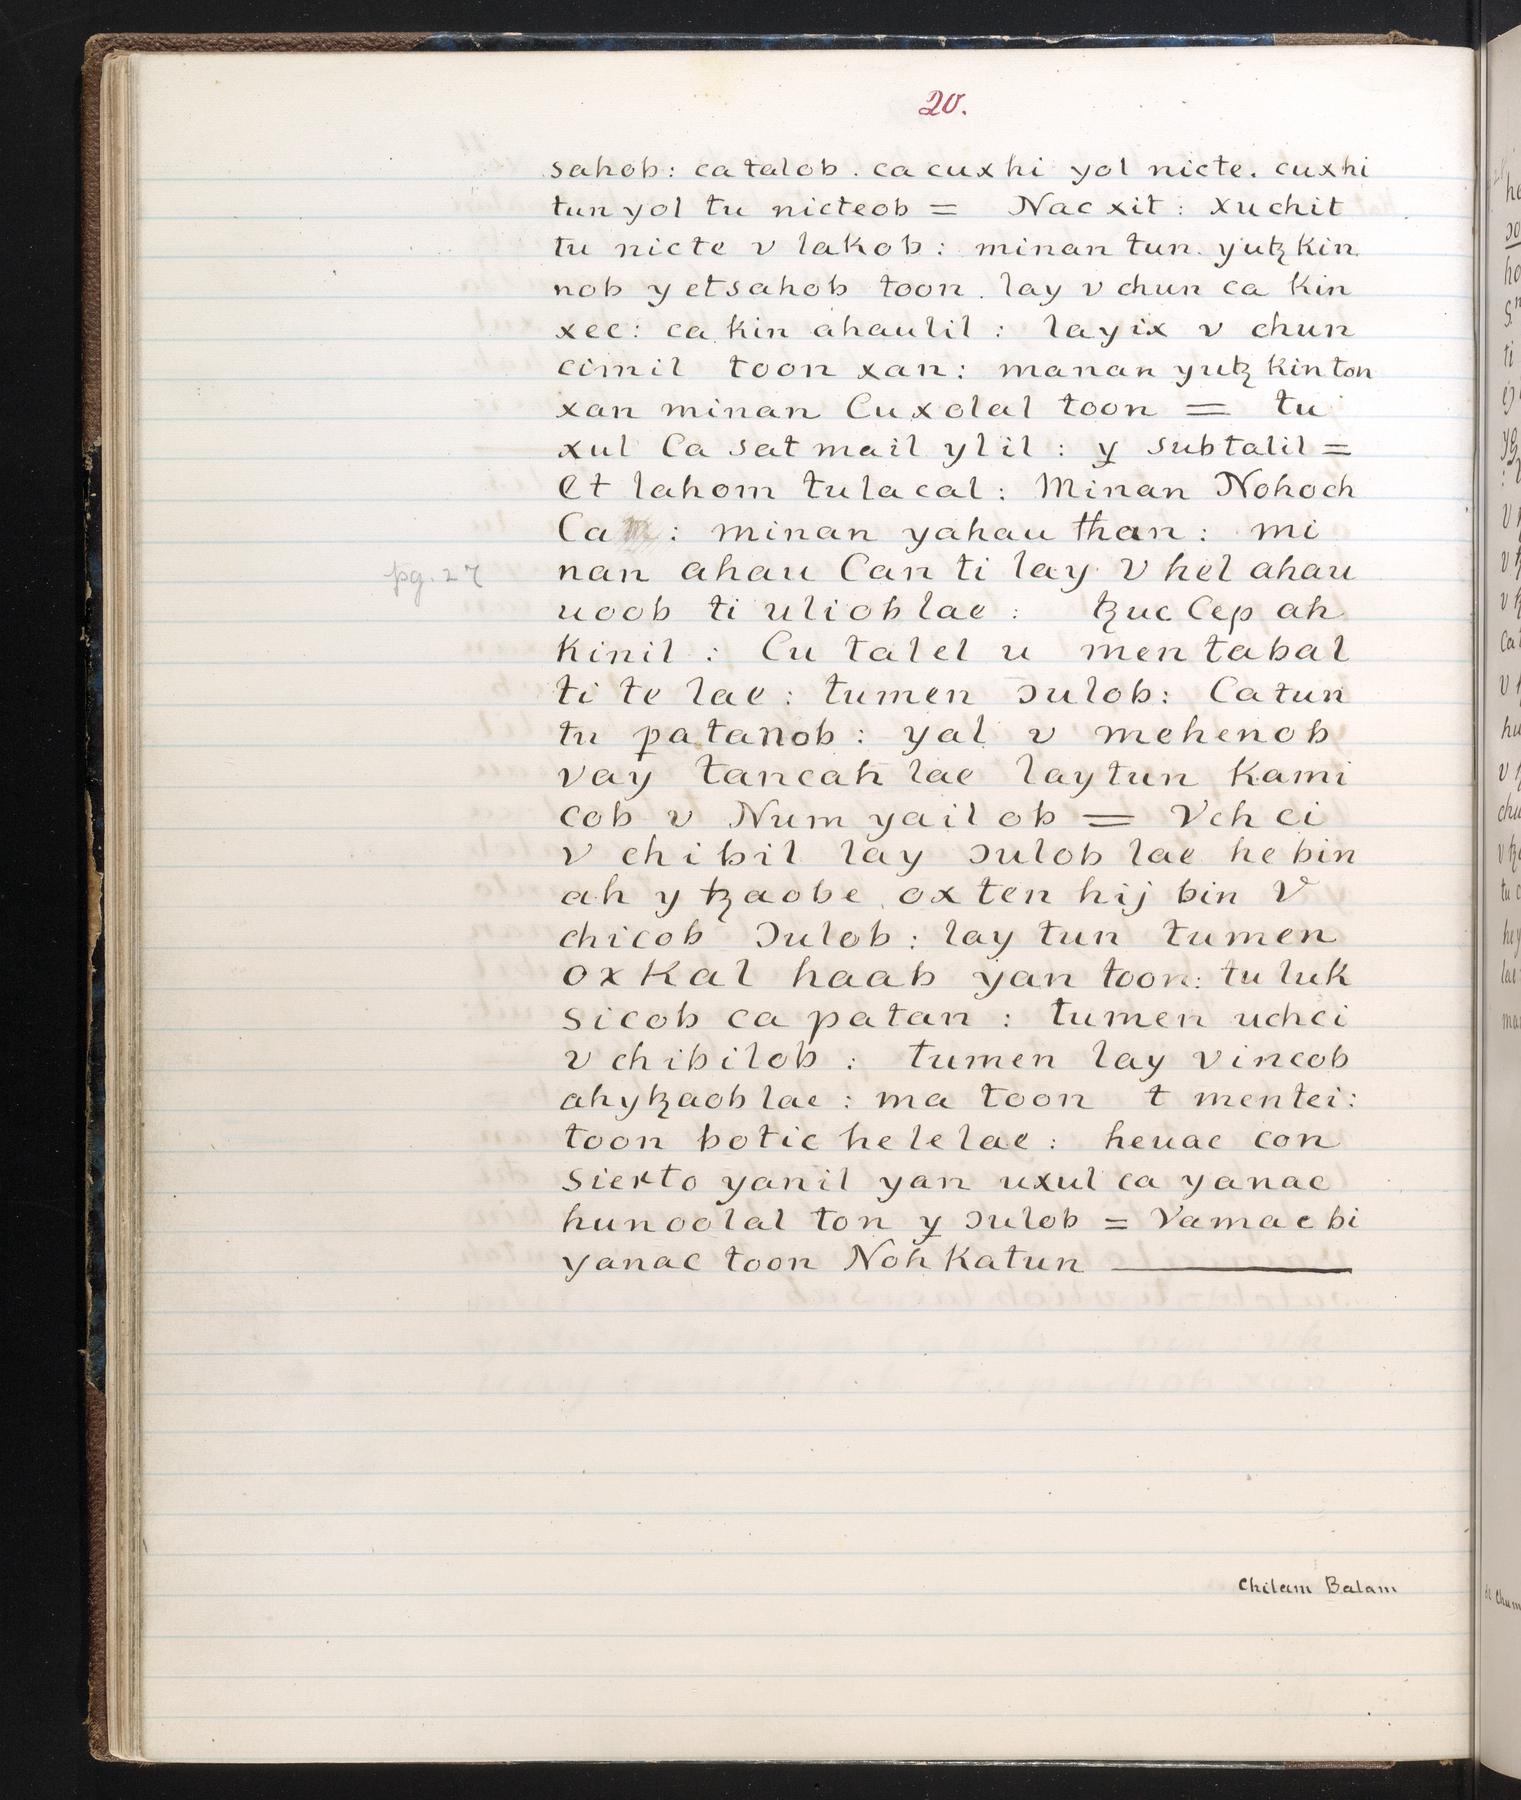 20.
sahob: ca talob. ca cuxhi yol nicte. cuxhi
tun yol tu nicteob = Nac xit: Xuchit
tu nicte v lakob: minan tun. yutꜩ kin
nob yetsahob toon. lay v chun ca kin
xec: ca kin ahaulil: layix v chun
cimil toon xan: manan yutꜩ kin ton
xan minan Cuxolal toon = tu
xul Ca sat mail ylil: y̱ subtalil =
Et lahom tulacal: Minan Nohoch
Can: minan yahau than: mi
pg. 27
nan ahau Can ti lay V hel ahau
uoob ti ulioblae: ꜩuc Cep ah
kinil: Cu talel u mentabal
ti te lae: tumen ɔulob: Catun
tu patanob: yal v mehenob
vay tancah lae laytun kami
cob v Num yailob = Vchci
v chibil lay ɔulob lae he bin
ah yꜩaobe oxten hij bin V
chicob Ɔulob: lay tun tumen
oxKal haab yan toon: tu luk
sicob ca patan: tumen uchci
v chibilob: tumen lay vincob
ahyꜩaob lae: ma toon t mentei:
toon botic helelae: heuac con
sierto yanil yan uxul ca yanac
hunoolal ton y̱ ɔulob = Vamac bi
yanac toon Noh Katun
Chilam Balam